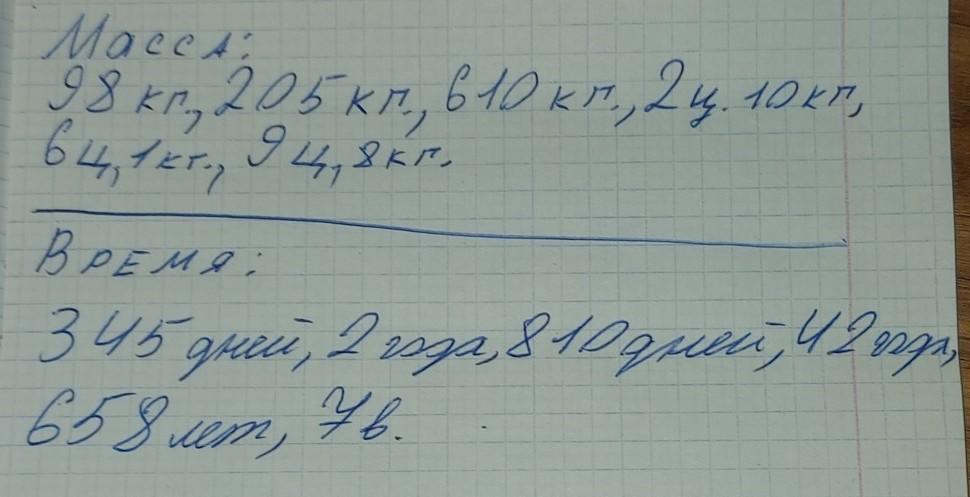 Масса:
98 кг., 205 кг., 610 кг., 2ц. 10кг,
6ц, 1кг., 9ц, 8кг.
Время:
345 дней, 2 года, 810 дней, 42 года,
658 лет, 7в.